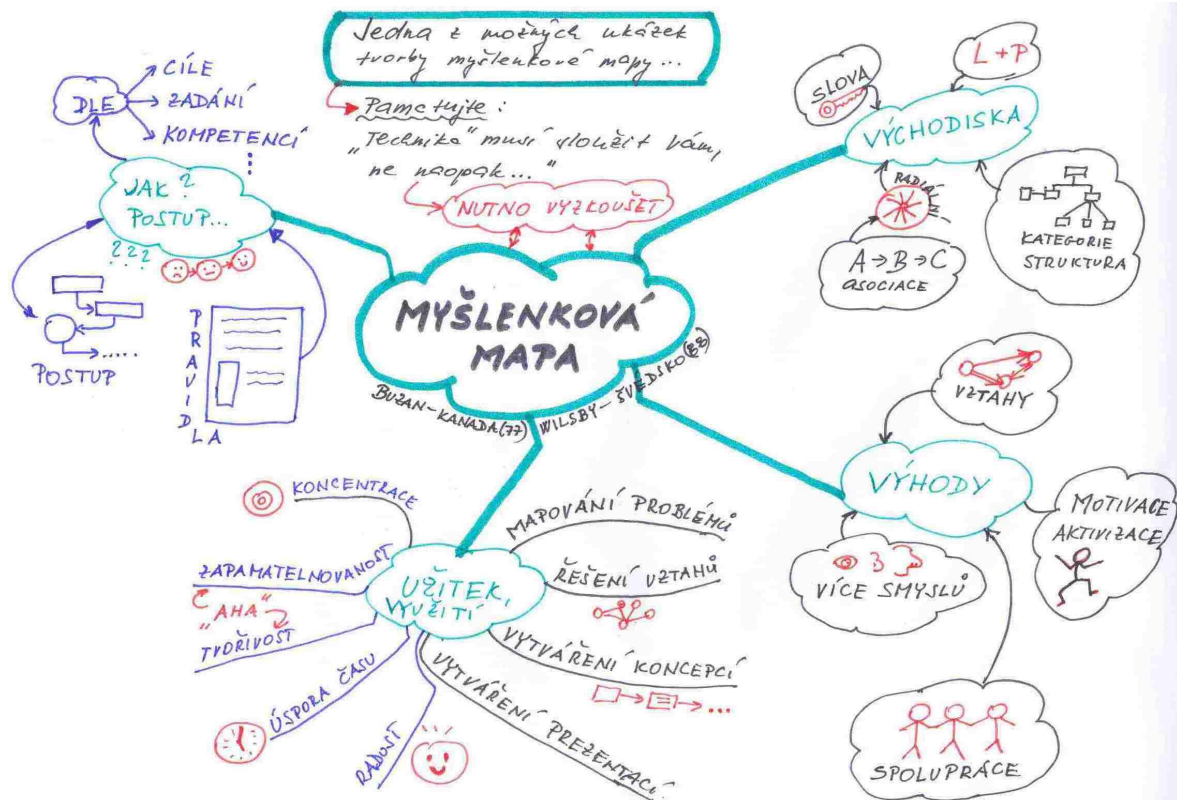 Jedna z možných ukázek
tvorby myšlenkové mapy...
Pamatujte:
„Technika" musí sloužit vám,
ne naopak..."
NUTNO VYZKOUŠET
MYŠLENKOVÁ
MAPA
BUZAN-KANADA(77) WILSBY-ŠVÉDSKO(88)
DLE
CÍLE
ZADÁNÍ
KOMPETENCÍ
JAK?
POSTUP...
???
POSTUP
PRAVIDLA
SLOVA
L+P
VÝCHODISKA
RADIÁ
A→B→C
ASOCIACE
KATEGORIE
STRUKTURA
VZTAHY
VÝHODY
MOTIVACE
AKTIVIZACE
VÍCE SMYSLŮ
SPOLUPRÁCE
UŽITEK,
VYUŽITÍ
KONCENTRACE
ZAPAMATELNOVANOST
„AHA"
TVOŘIVOST
ÚSPORA ČASU
RADOST
MAPOVÁNÍ PROBLÉMŮ
ŘEŠENÍ VZTAHŮ
VYTVÁŘENÍ KONCEPCÍ
VYTVÁŘENÍ PREZENTACÍ